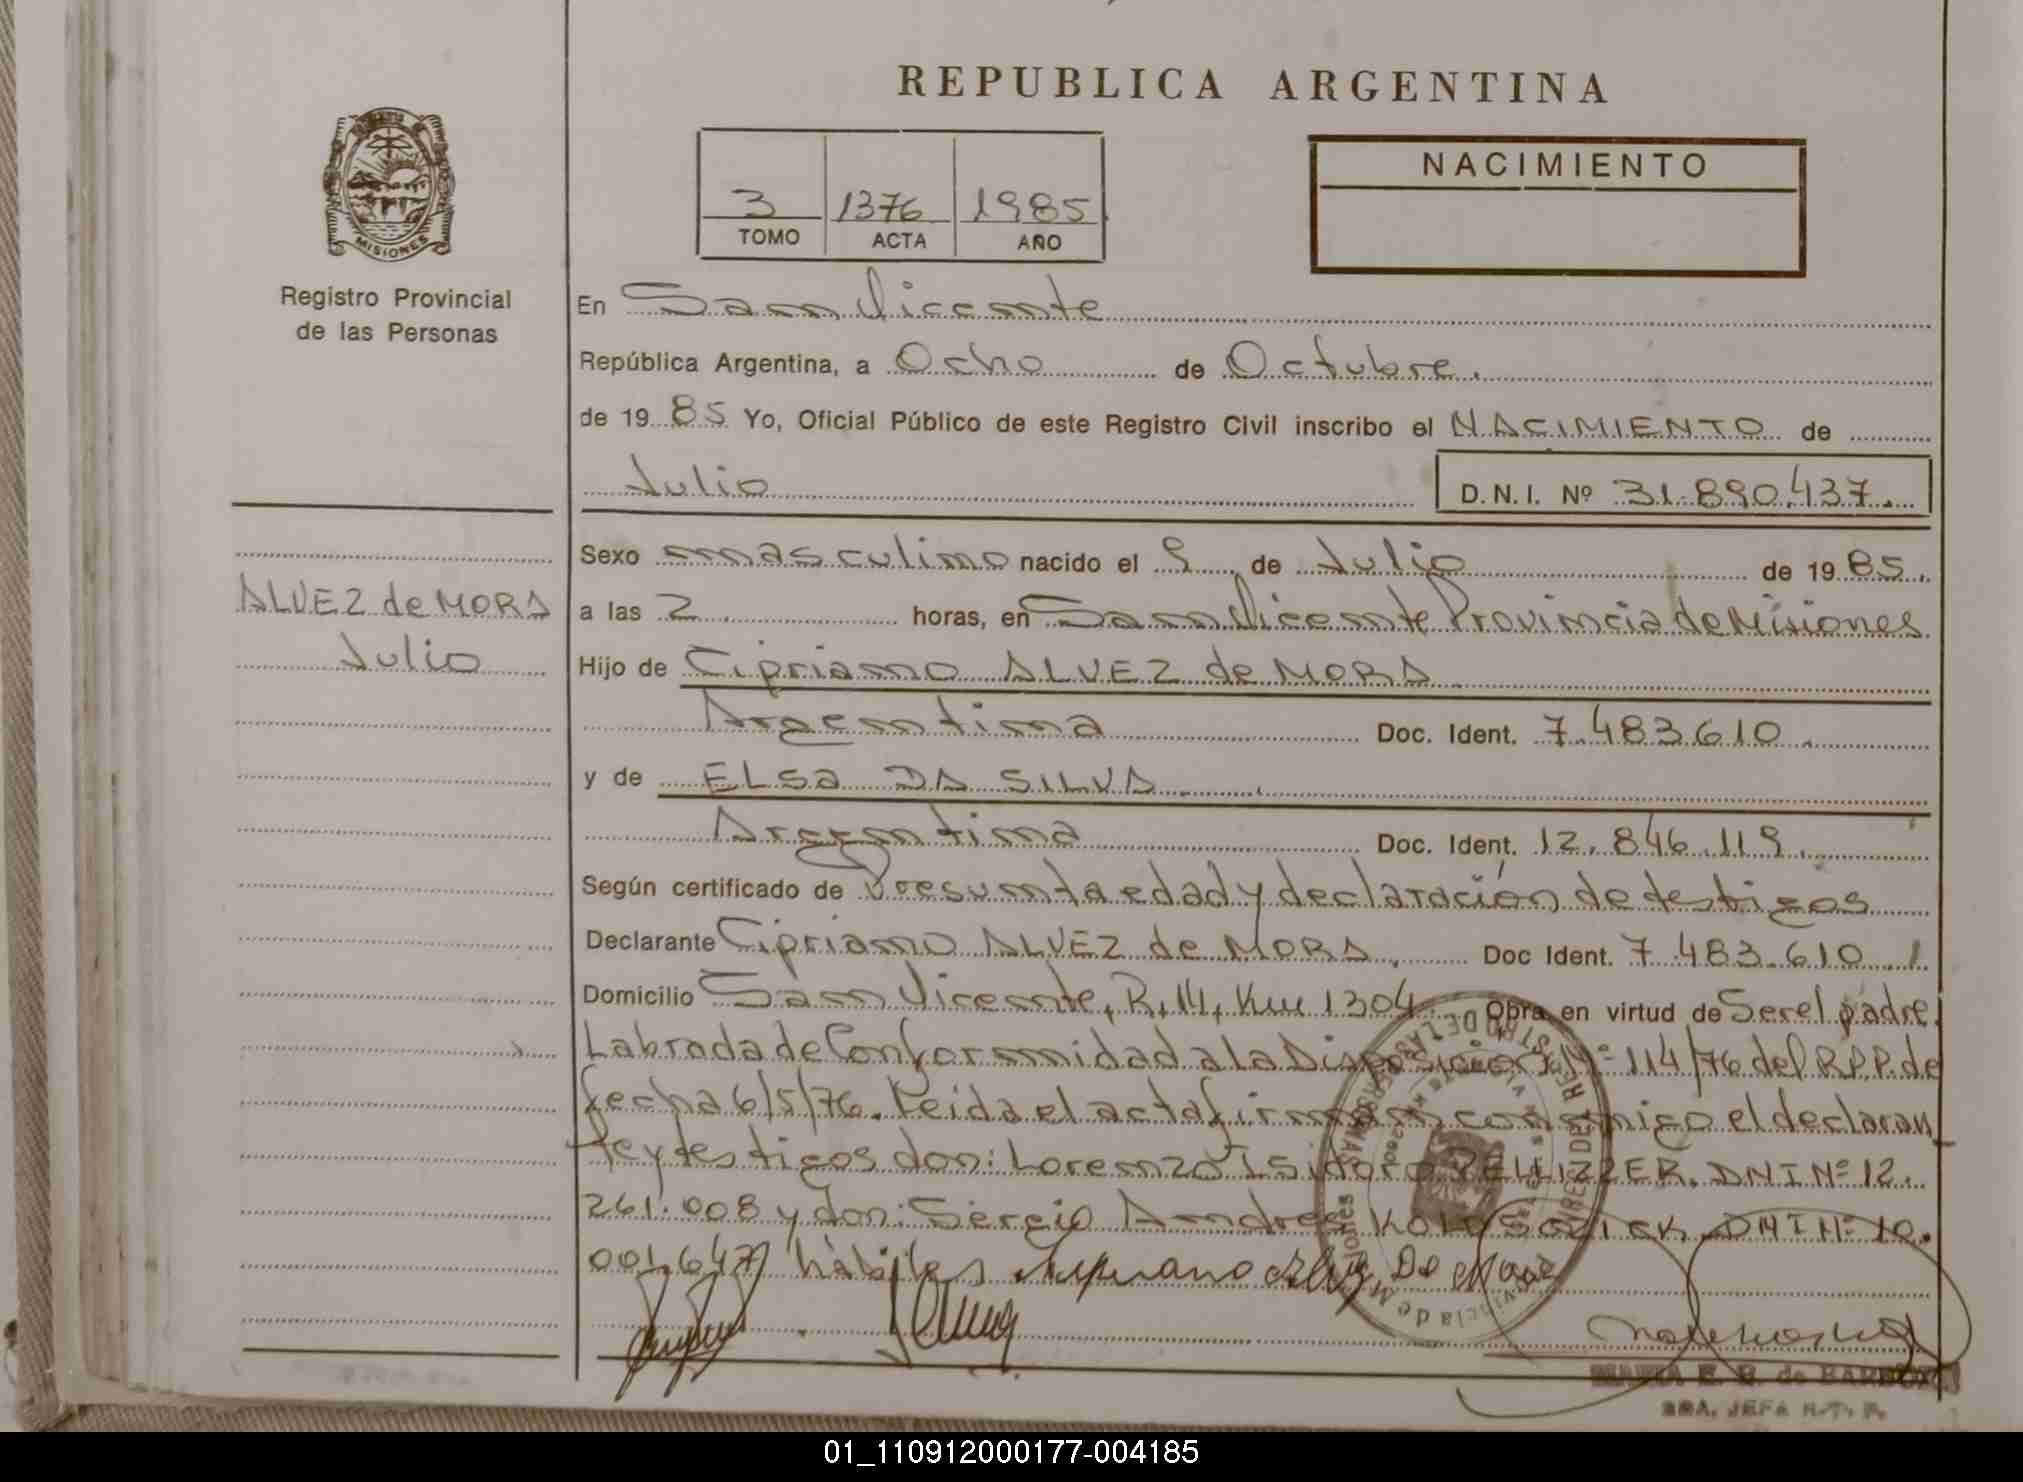 REPUBLICA ARGENTINA
MISIONES
Registro Provincial
de las Personas
3 1376 1985
TOMO ACTA AÑO
NACIMIENTO
En San Vicente
República Argentina, a Ocho de Octubre.
de 1985 Yo, Oficial Público de este Registro Civil inscribo el NACIMIENTO de
Julio D.N.I. Nº 31.890.437.
Sexo masculino nacido el 9 de Julio de 1985.
ALVEZ de MORA
Julio
a las 2 horas, en San Vicente Provincia de Misiones
Hijo de Cipriano ALVEZ de MORA
Argentina Doc. Ident. 7.483.610.
y de ELSA DA SILVA
Argentina Doc. Ident. 12.846.119.
Según certificado de Presunta edad y declaración de testigos
Declarante Cipriano ALVEZ de MORA. Doc Ident. 7.483.610
Domicilio San Vicente, R.14, Km 1304. Obra en virtud de Ser el padre.
Labrada de Conformidad a la Disposición Nº 114/76 del R.P.P. de
fecha 6/5/76. Leida el acta firman conmigo el declaran
te y testigos don: Lorenzo Isidoro PELLIZZER. DNI Nº 12.
261.008 y don: Sergio Andres DNI Nº 10.
001.647 hábiles
Cipriano Alvez De Mora
MARIA E. B. de
SRA. JEFA R.P.P.
01_110912000177-004185